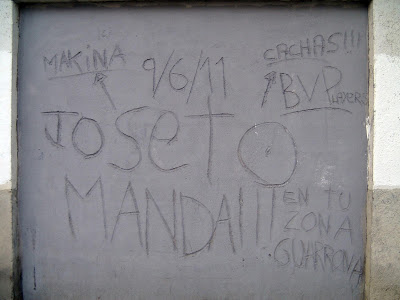 MAKINA 9/6/11 CACHAS!!!
BVP
JOSETO
MANDA!!! EN TU
ZONA
GUARRONA